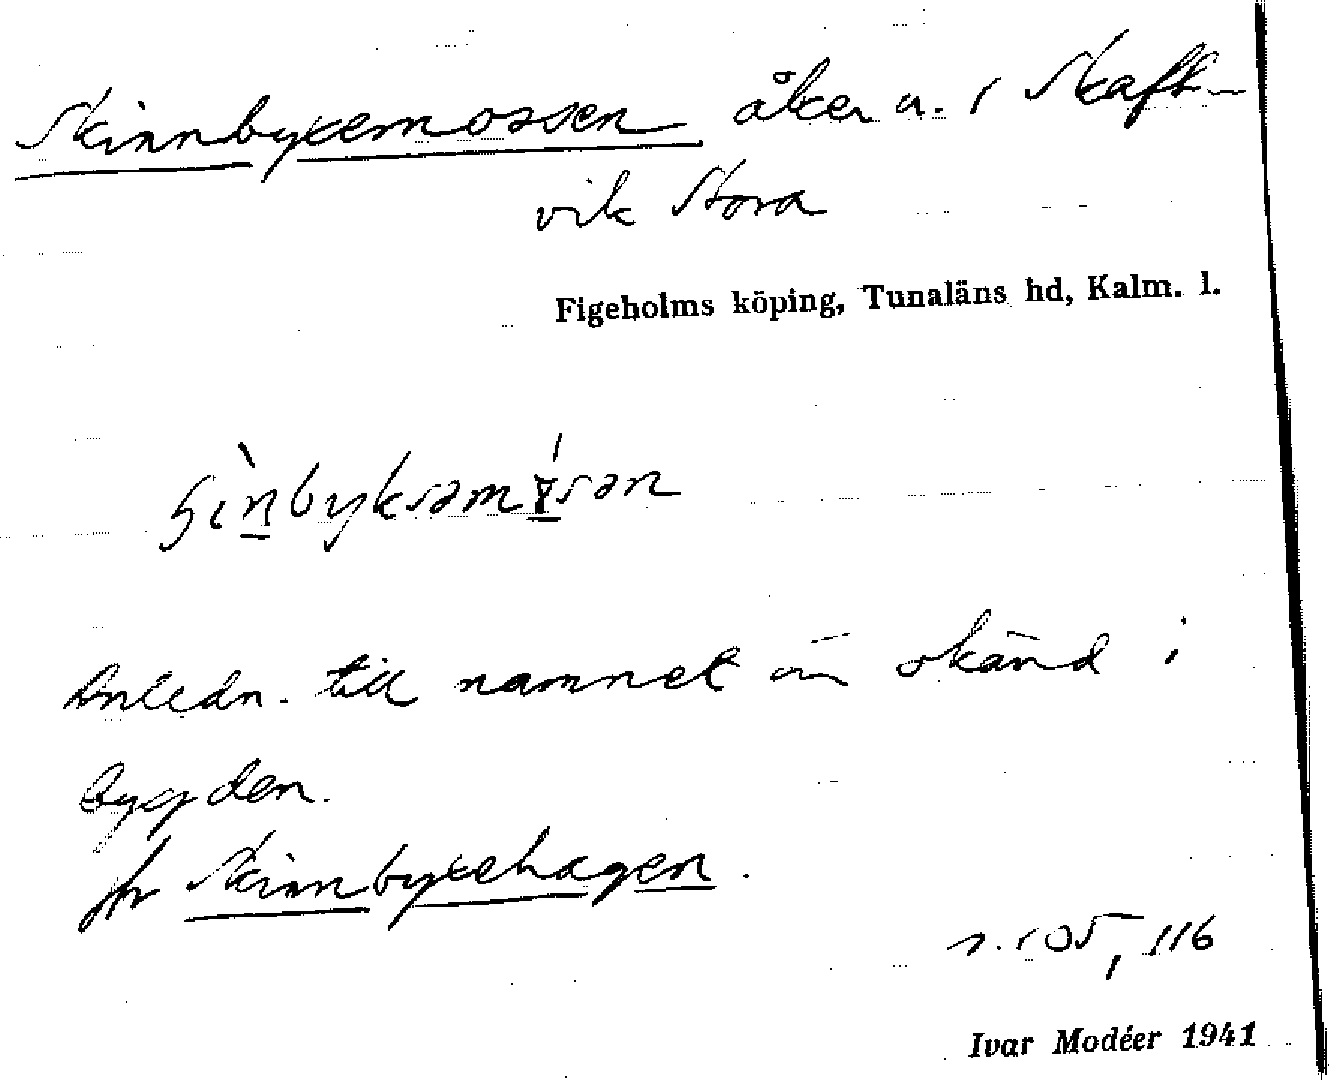 Skinnbyxemossen åker n. 1 Skaft-
vik Stora
Figeholms köping, Tunaläns hd, Kalm. l.
Anledn. till namnet än okänd i
bygden.
jfr Skinnbyxehagen.
s. 105, 116
Ivar Modéer 1941